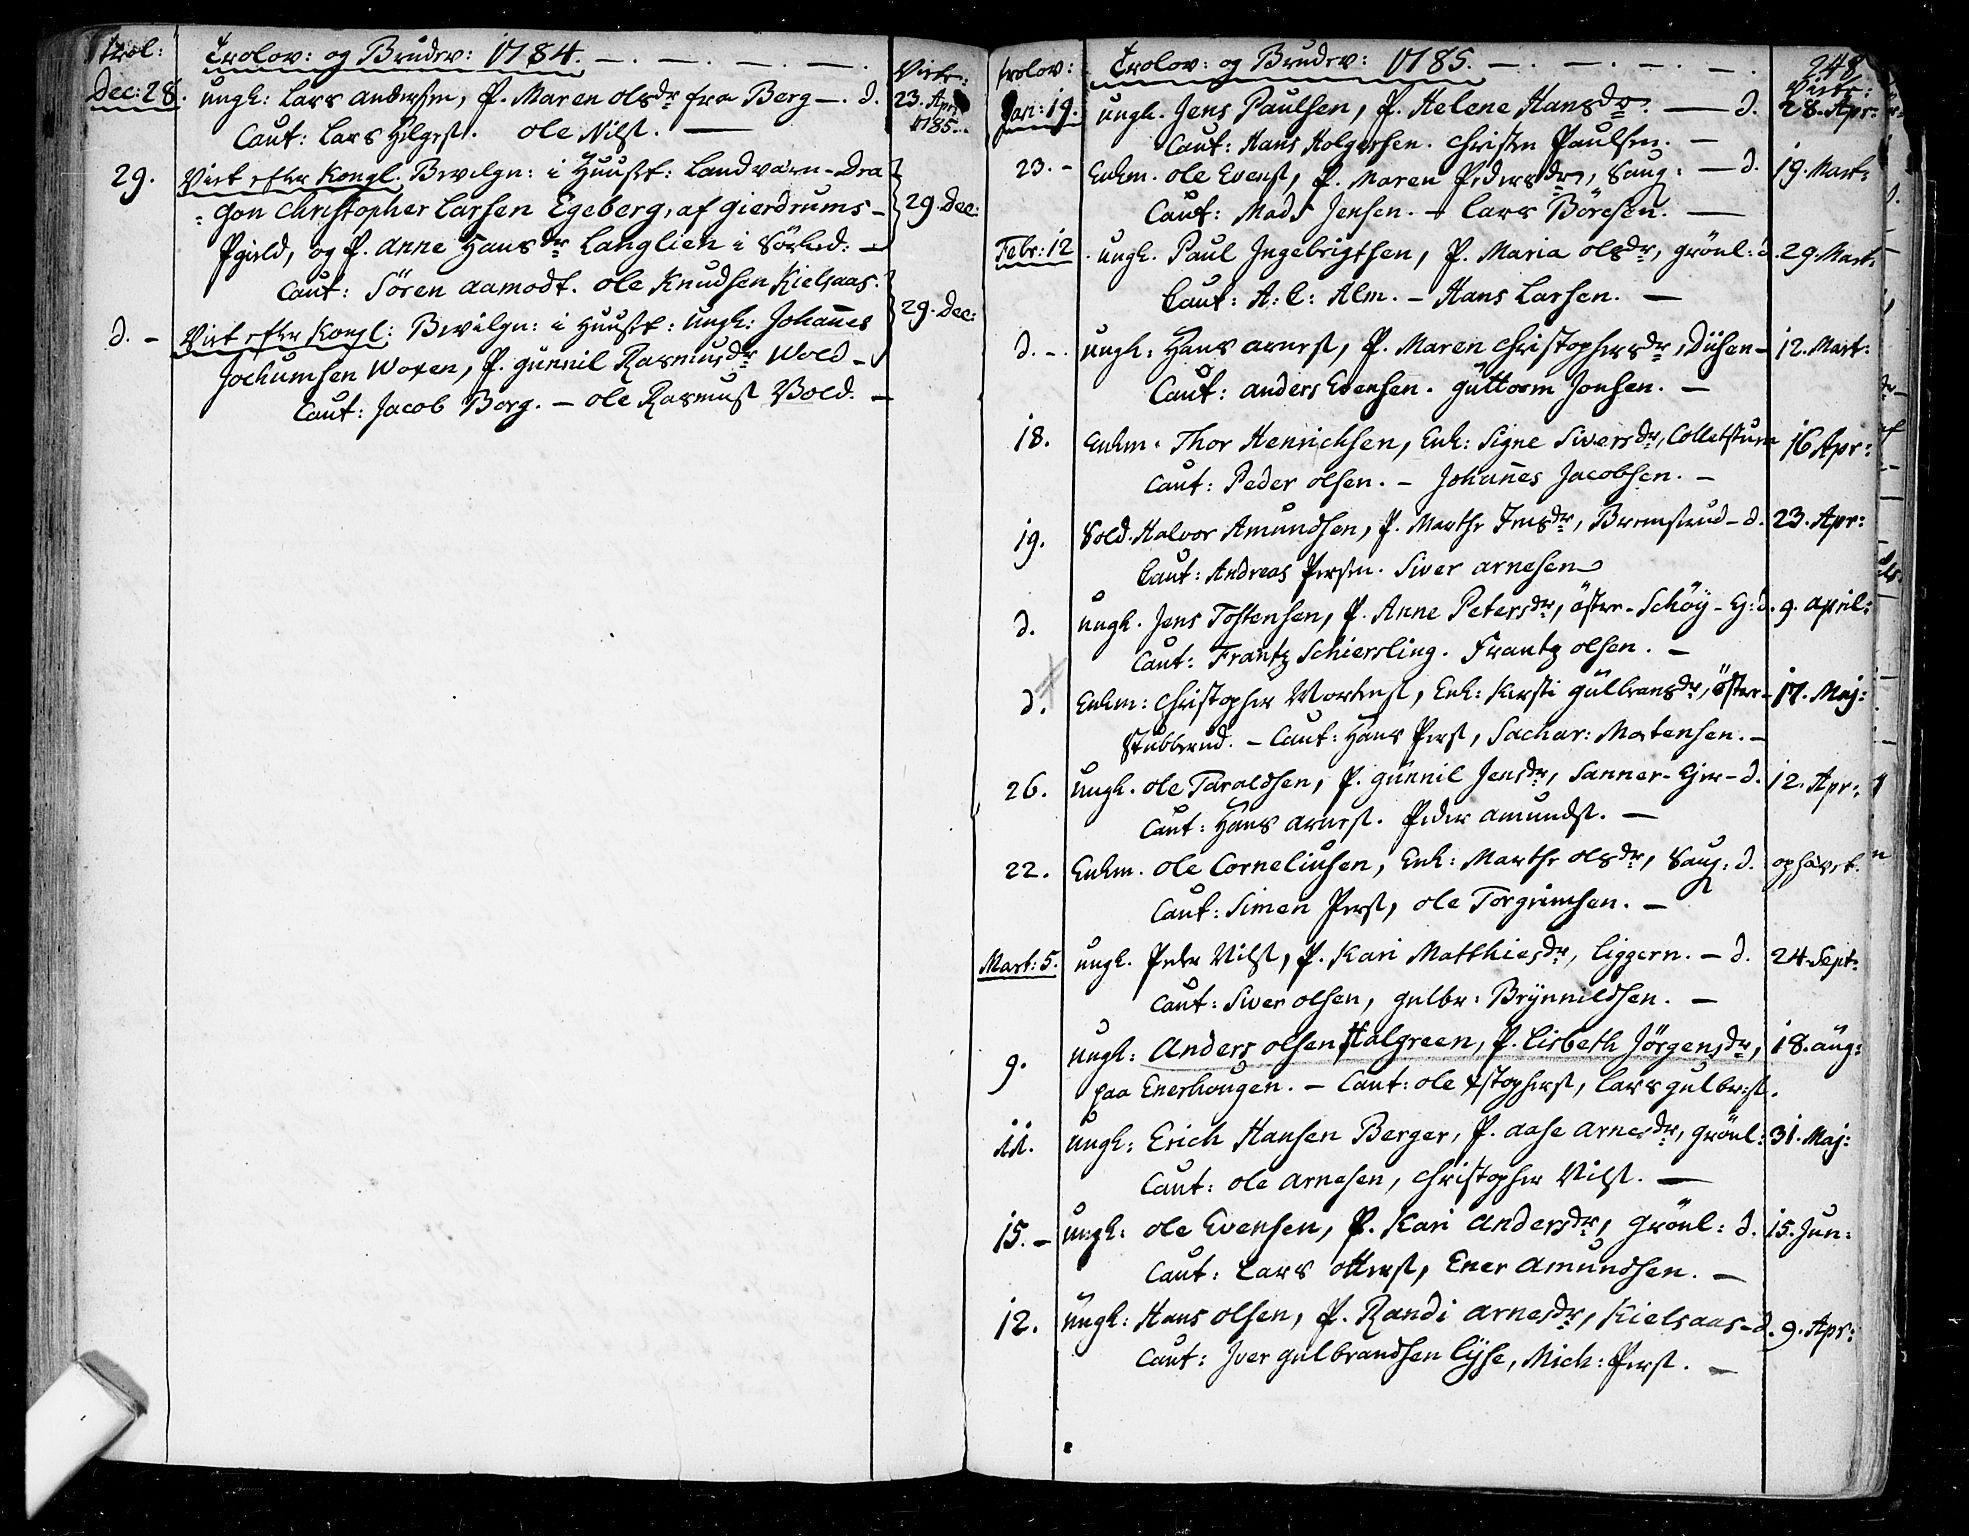 Trol:
Trolov: og Brudev: 1784. — . — . — . — .
Viet:
Dec: 28. ungk: Lars Andersen, P. Maren Olsdr fra Berg — . d. 23. Apr: 1785.
Caut: Lars Helgest. Ole Nilst. —
29. Viet efter Kongl. Bevilgn: i Huuset: Landværn-Dra
=gon Christopher Larsen Egeberg, af Gierdrums- 29. Dec:
Pgield, og P. Anne Hansdr Langlien i Sörked: —
Caut: Sören Aamodt. Ole Knudsen Kielsaas.
d. — Viet efter Kongl: Bevilgn: i Huuset: ungk: Johannes 29. Dec:
Jochumsen Woxen, P. Gunnil Rasmusdr Wold —
Caut: Jacob Borg. — Ole Rasmust Vold. —
248
trolov: Trolov: og Brudev: 1785. — . — . — . — . Viet:
Jan: 19. ungk. Jens Paulsen, P. Helene Hansdr. — d. 28. Apr:
Caut: Hans Holgersen. Christen Paulsen. —
23. — Enkm. Ole Evenst, P. Maren Pedersdr, Saug: — d. 19. Mart:
Caut: Mads Jensen. — Lars Böresen. —
Febr: 12. ungk. Paul Ingebrigtsen, P. Maria Olsdr, Grönl: d. 29. Mart:
Caut: A: C: Alm. — Hans Larsen. —
d. — . ungk: Hans Arnest, P. Maren Christophersdr, Disen — 12. Mart:
Caut: Anders Evensen. Guttorm Jonsen. —
18. Enkm. Thor Henrichsen, Enk: Signe Siversdr, Colletstuen 16 Apr:
Caut: Peder Olsen. — Johannes Jacobsen. —
19. Sold. Halvor Amundsen, P. Marthe Jensdr, Bremsrud — d. 23. Apr:
Caut: Andreas Persen. Siver Arnesen
d. ungk. Jens Tostensen, P. Anne Petersdr, Öster-Schöy-E: d. 9. April:
Caut: Frantz Schiersling. Frantz Olsen. —
d. Enkm: Christopher Mortenst, Enk: Kirsti Gulbransdr, Öster- 17. Maj:
Stubberud. — Caut: Hans Perst, Sachar: Mortensen. —
26. ungk. Ole Taraldsen, P. Gunnil Jensdr, Sanner-Ejer — d. 12. Apr:
Caut: Hans Arnest. Peder Amundst. —
22. Enkm. Ole Corneliusen, Enk: Marthe Olsdr, Saug: d. ophævet.
Caut: Simen Perst, Ole Torgrimsen. —
Mart: 5. ungk. Peder Nilst, P. Kari Matthiesdr, Liggern. — d. 24 Sept:
Caut: Siver Olsen, Gulbr: Brynnildsen. —
9. ungk: Anders Olsen Halgreen, P. Lisbeth Jörgensdr, 18. Aug:
paa Enerhougen. — Caut: Ole Xstopherst, Lars Gulbr:st.
11. ungk: Erich Hansen Berger, P. Aase Arnesdr, Grönl: 31. Maj:
Caut: Ole Arnesen, Christopher Nilst. —
15. — ungk: Ole Evensen, P. Kari Andersdr, Grönl: d. 15. Jun:
Caut: Lars Otterst, Ener Amundsen. —
12. ungk: Hans Olsen, P. Randi Arnesdr, Kielsaas — d. 9. Apr:
Caut: Iver Gulbrandsen Lyse, Mich: Perst. —